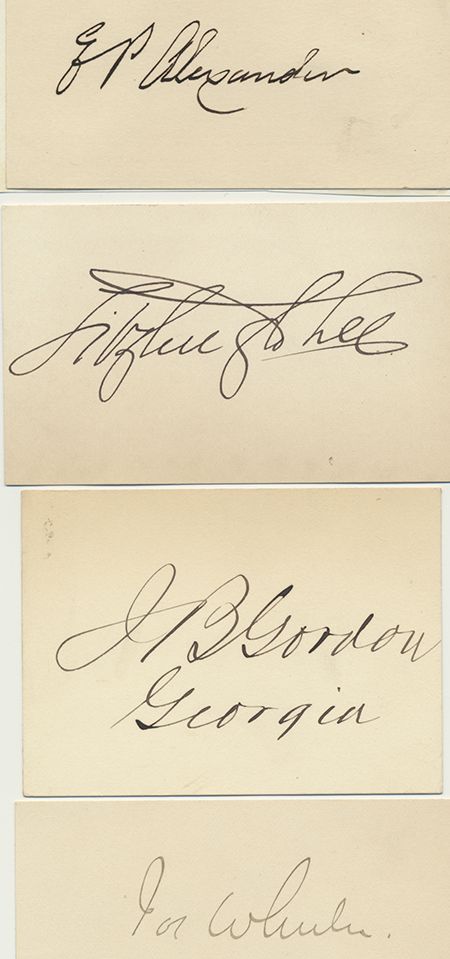 E P Alexander
Fitzhugh Lee
J B Gordon
Georgia
Jos Wheeler.